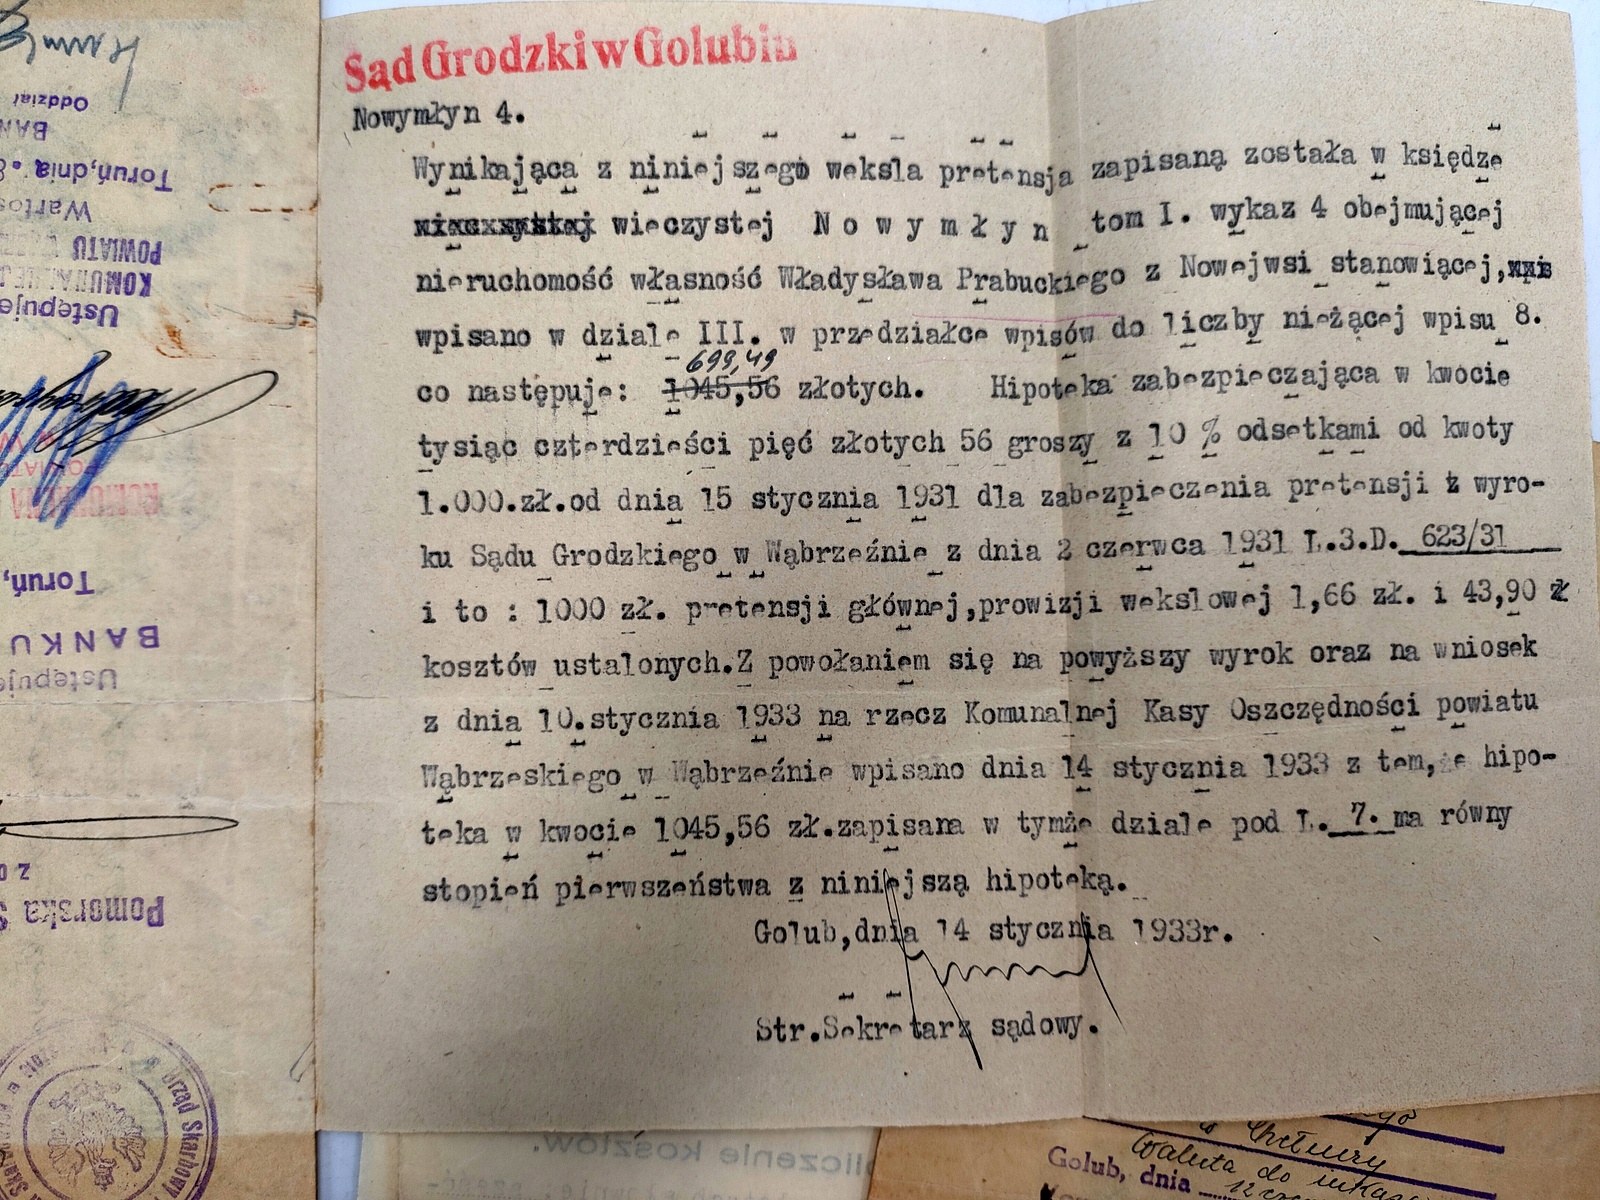 Sąd Grodzki w Golubiu
Nowymłyn 4.
Wynikająca z niniejszego weksla pretensja zapisaną została w księdze
wieczystej N o w y m ł y n tom I. wykaz 4 obejmującej
nieruchomość własność Władysława Prabuckiego z Nowejwsi stanowiącej,
wpisano w dziale III. w przedziałce wpisów do liczby nieżącej wpisu 8.
699,49
co następuje: 1045,56 złotych. Hipoteka zabezpieczająca w kwocie
tysiąc czterdzieści pięć złotych 56 groszy z 10 % odsetkami od kwoty
1.000.zł.od dnia 15 stycznia 1931 dla zabezpieczenia pretensji z wyro-
ku Sądu Grodzkiego w Wąbrzeźnie z dnia 2 czerwca 1931 L.3.D. 623/31
i to : 1000 zł. pretensji głównej,prowizji wekslowej 1,66 zł. i 43,90 zł
kosztów ustalonych.Z powołaniem się na powyższy wyrok oraz na wniosek
z dnia 10.stycznia 1933 na rzecz Komunalnej Kasy Oszczędności powiatu
Wąbrzeskiego w Wąbrzeźnie wpisano dnia 14 stycznia 1933 z tem,że hipo-
teka w kwocie 1045,56 zł.zapisana w tymże dziale pod L. 7. ma równy
stopień pierwszeństwa z niniejszą hipoteką.
Golub,dnia 14 stycznia 1933r.
Str.Sekretarz sądowy.
Oddział
Toruń,dnia
POWIATU
Ustępuje
Toruń,
BANKU
Ustępuje
Pomorska
Urząd Skarbowy
liczenie kosztów.
Golub, dnia
Waluta do